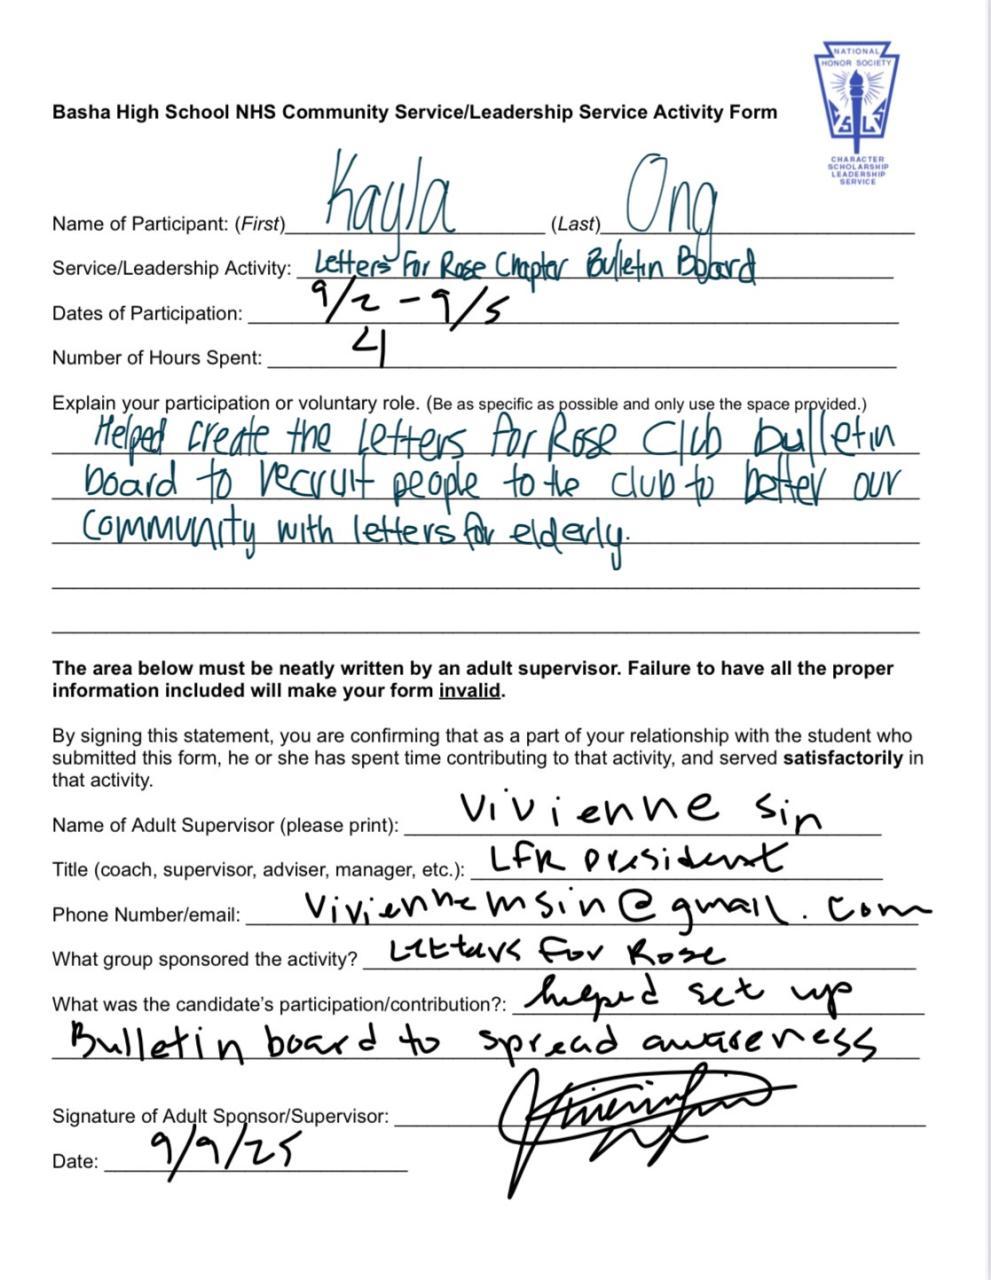 NATIONAL
HONOR SOCIETY
S L
CHARACTER
SCHOLARSHIP
LEADERSHIP
SERVICE
Basha High School NHS Community Service/Leadership Service Activity Form
Name of Participant: (First) Kayla (Last) Ong
Service/Leadership Activity: Letters For Rose Chapter Bulletin Board
Dates of Participation: 9/2 - 9/5
Number of Hours Spent: 4
Explain your participation or voluntary role. (Be as specific as possible and only use the space provided.)
Helped create the Letters for Rose Club bulletin
board to recruit people to the club to better our
community with letters for elderly.
The area below must be neatly written by an adult supervisor. Failure to have all the proper
information included will make your form invalid.
By signing this statement, you are confirming that as a part of your relationship with the student who
submitted this form, he or she has spent time contributing to that activity, and served satisfactorily in
that activity.
Name of Adult Supervisor (please print): Vivienne Sin
Title (coach, supervisor, adviser, manager, etc.): LFR president
Phone Number/email: Viviennemsin@gmail.com
What group sponsored the activity? Letters For Rose
What was the candidate's participation/contribution?: helped set up
Bulletin board to spread awareness
Signature of Adult Sponsor/Supervisor:
Date: 9/9/25